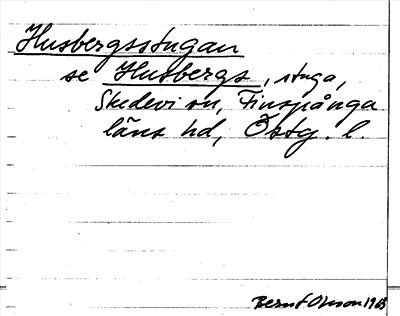 Husbergsstugan
se Husbergs, stuga,
Skedevi sn, Finspånga
läns hd, Östg. l.
Bernt Olsson 1963